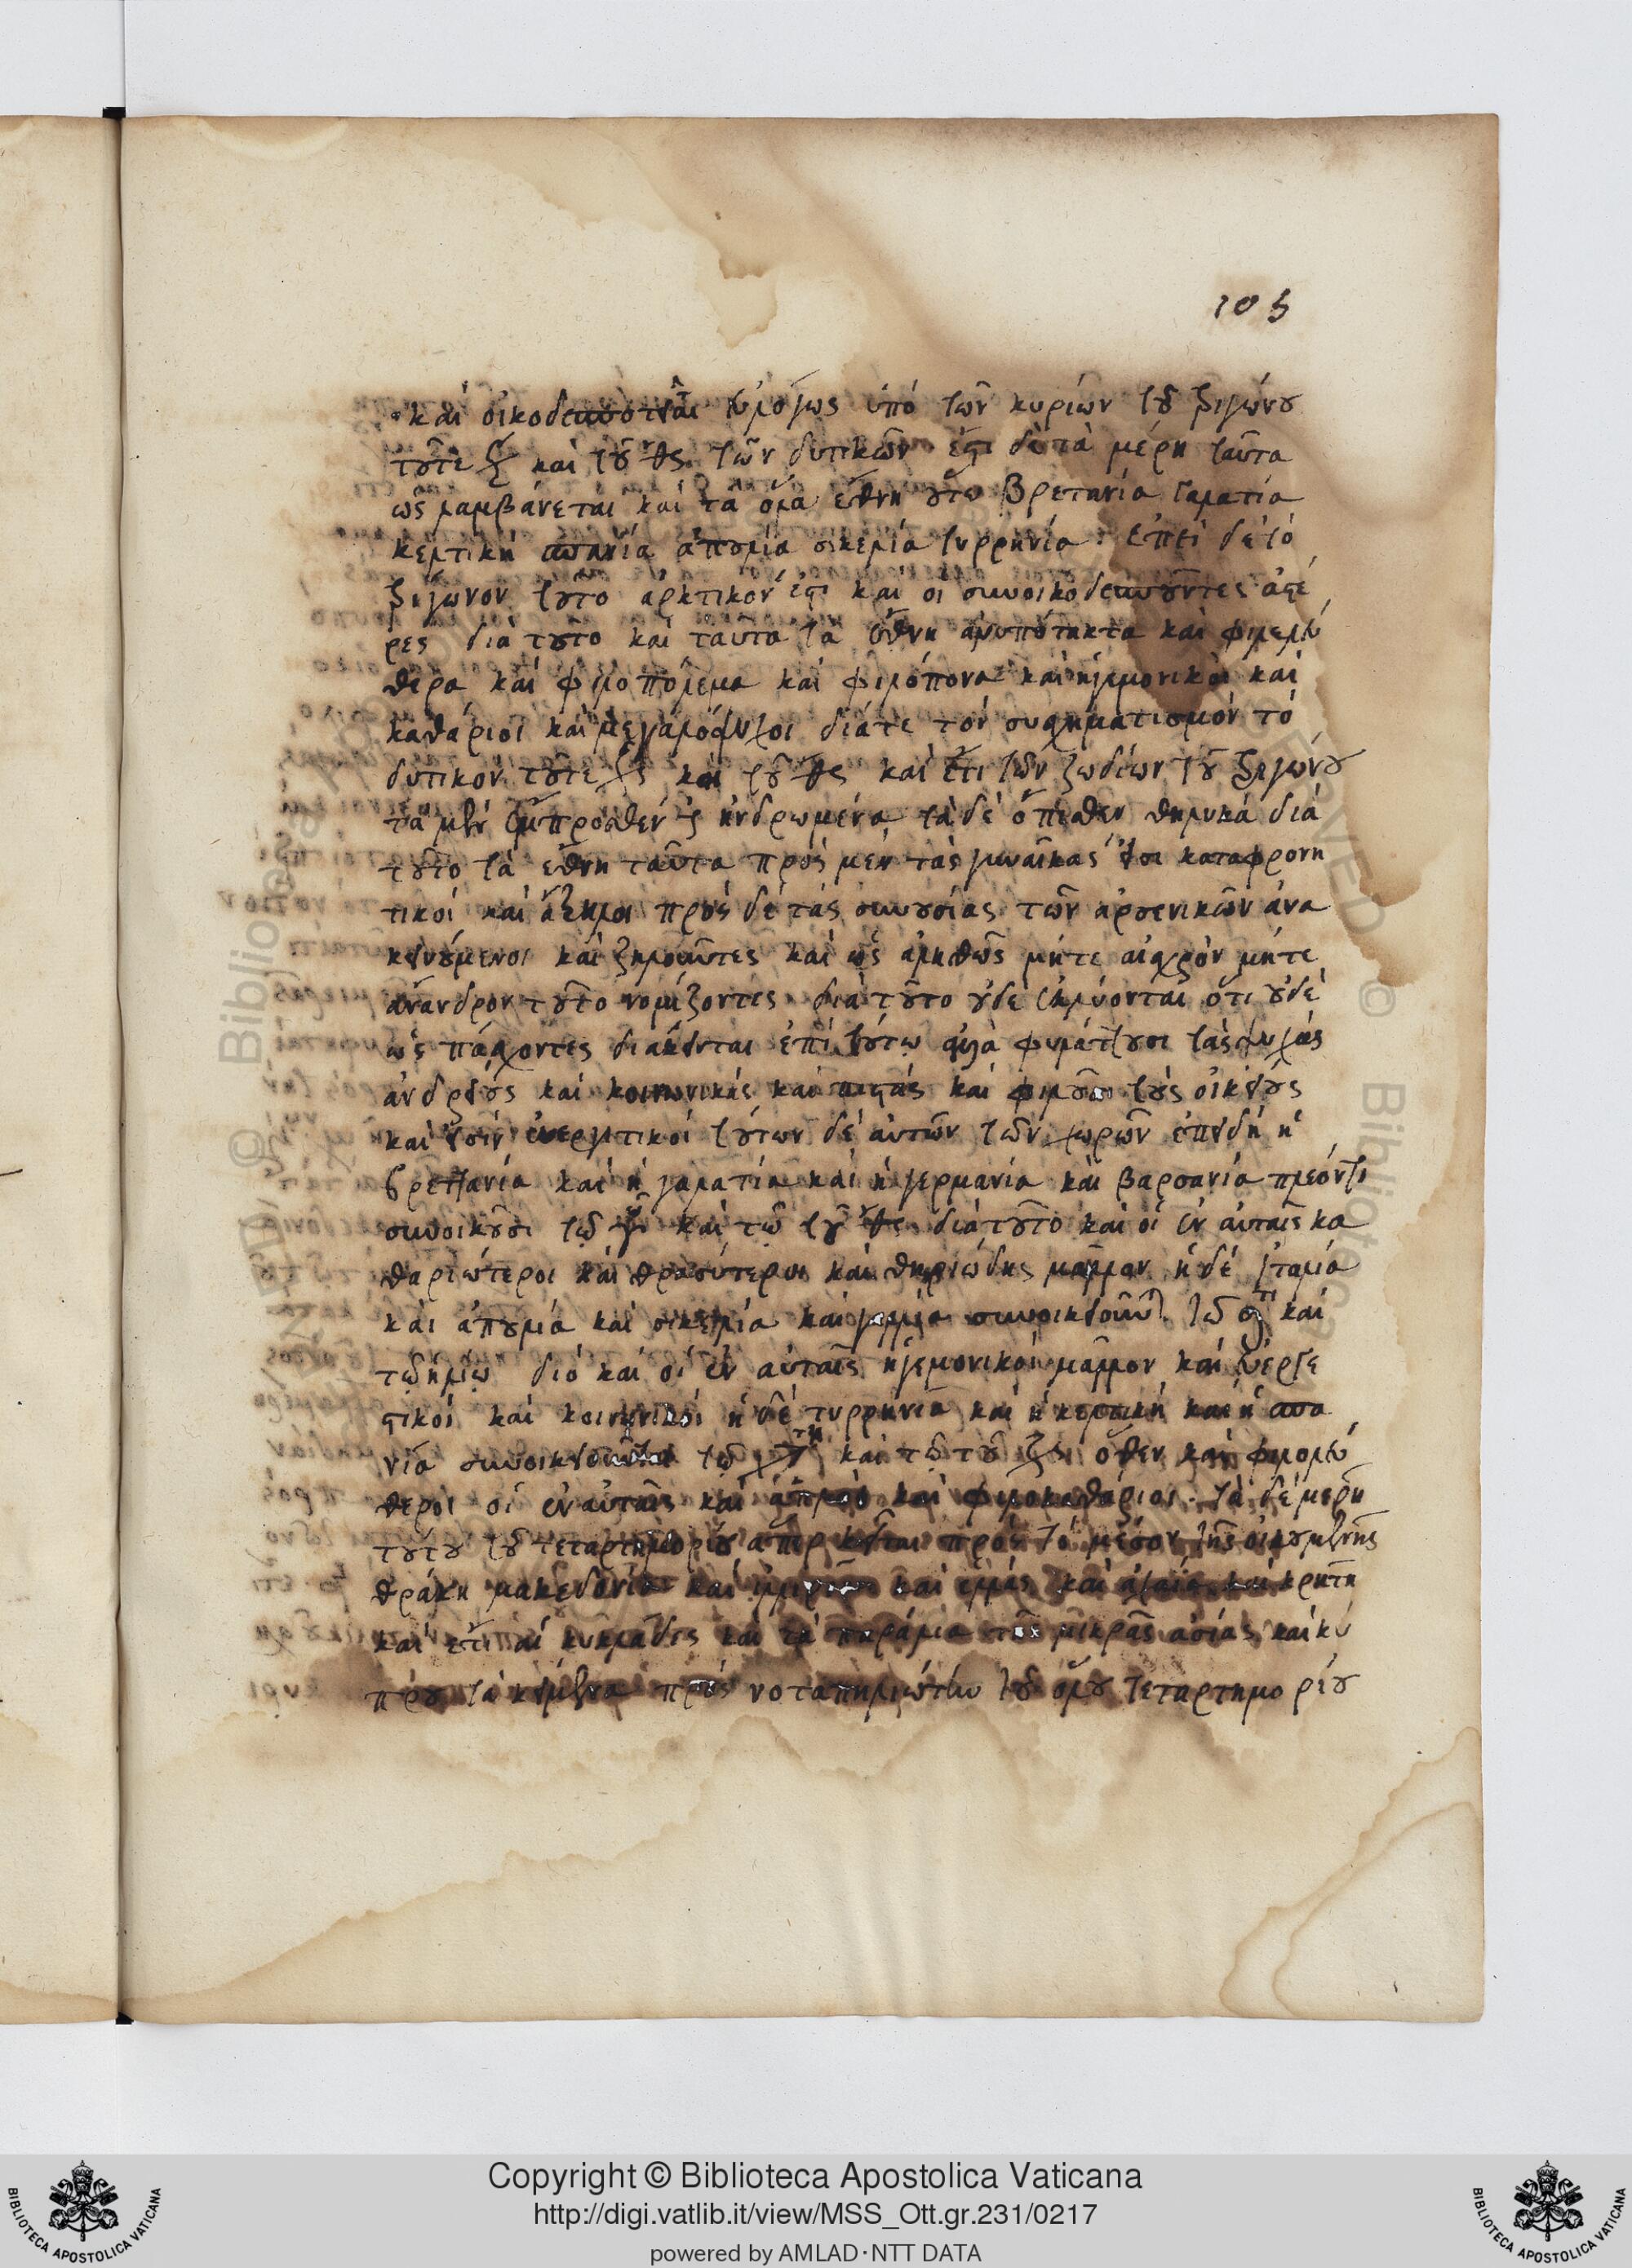 105
καὶ οἰκοδεσποτεῖται εὐλόγως ὑπὸ τῶν κυρίων τοῦ τριγώνου
τοῦτε ♃ καὶ τοῦ ♂ς τῶν δυτικῶν ἔστι δὲ τὰ μέρη ταῦτα
ὡς λαμβάνεται καὶ τὰ ὅλα ἔθνη οὕτω βρετανία γαλατία
κελτικὴ σπανία ἀπουλία σικελία τυρρηνία. ἐπεὶ δὲ τὸ
τρίγωνον τοῦτο ἀρκτικόν ἐστι καὶ οἱ συνοικοδεσποῦντες ἀστέ
ρες διὰ τοῦτο καὶ ταῦτα τὰ ἔθνη ἀνυπότακτα καὶ φιλελεύ
θερα καὶ φιλοπόλεμα καὶ φιλόπονα καὶ ἡγεμονικοὶ καὶ
καθάριοι καὶ μεγαλόψυχοι διάτε τὸν συσχηματισμὸν τὸ
δυτικὸν τοῦτε καὶ τοῦ καὶ ἔτι τῶν ζωδίων τοῦ τριγώνου
τὰ μὲν ἔμπροσθέν ἠνδρωμένα τὰ δὲ ὄπισθεν θηλυκά διὰ
τοῦτο τὰ ἔθνη ταῦτα πρὸς μὲν τὰς γυναῖκας εἰσι καταφρονη
τικοὶ καὶ ἄζηλοι πρὸς δὲ τὰς συνουσίας τῶν ἀρσενικῶν ἀνα
κινούμενοι καὶ ζηλοῦντες καὶ ὡς ἀληθῶς μήτε αἰσχρὸν μήτε
ἄνανδρον τοῦτο νομίζοντες διὰ τοῦτο οὐδὲ ἐκλύονται ὅτι οὐδὲ
ὡς πάσχοντες διάκεινται ἐπὶ τούτῳ ἀλλὰ φυλάττουσι τὰς ψυχὰς
ἀνδρείους καὶ κοινωνικὰς καὶ πιστὰς καὶ φιλοῦσι τοὺς οἰκείους
καὶ εἰσὶν εὐεργετικοί τούτων δὲ αὐτῶν τῶν χωρῶν ἐπειδὴ ἡ
βρεττανία καὶ ἡ γαλατία καὶ ἡ γερμανία καὶ βαρσανία πλέον τι
συνοικοῦσι τῷ καὶ τῷ τοῦ διὰ τοῦτο καὶ οἱ ἐν αὐταῖς κα
θαριώτεροι καὶ θρασύτεροι καὶ θηριώδης μᾶλλον ἡ δὲ ἰταλία
καὶ ἀπουλία καὶ σικελία καὶ γαλλία συνοικειοῦν τῷ καὶ
τῷ ἡλίῳ διὸ καὶ οἱ ἐν αὐταῖς ἡγεμονικοὶ μᾶλλον καὶ εὐεργε
τικοὶ καὶ κοινωνικοὶ ἡ δὲ τυρρηνία καὶ ἡ κελτικὴ καὶ ἡ σπα
νία συνοικειοῦνται τῷ καὶ τῷ τοῦ ὅθεν καὶ φιλολεύ
θεροι οἱ ἐν αὐταῖς καὶ ἁπλοὶ καὶ φιλοκαθάριοι. τὰ δὲ μέρη
τούτου τοῦ τεταρτημορίου ἅπερ κεῖται πρὸς τὸ μέσον τῆς οἰκουμένης
θρᾴκη μακεδονία καὶ ἰλλυρία καὶ ἑλλὰς καὶ ἀχαΐα καὶ κρήτη
καὶ ἔτι αἱ κυκλάδες καὶ τὰ παράλια τῆς μικρᾶς ἀσίας καὶ κύ
πρου τὰ κείμενα πρὸς νοταπηλιώτην τοῦ ὅλου τεταρτημορίου
Copyright © Biblioteca Apostolica Vaticana
http://digi.vatlib.it/view/MSS_Ott.gr.231/0217
powered by AMLAD·NTT DATA